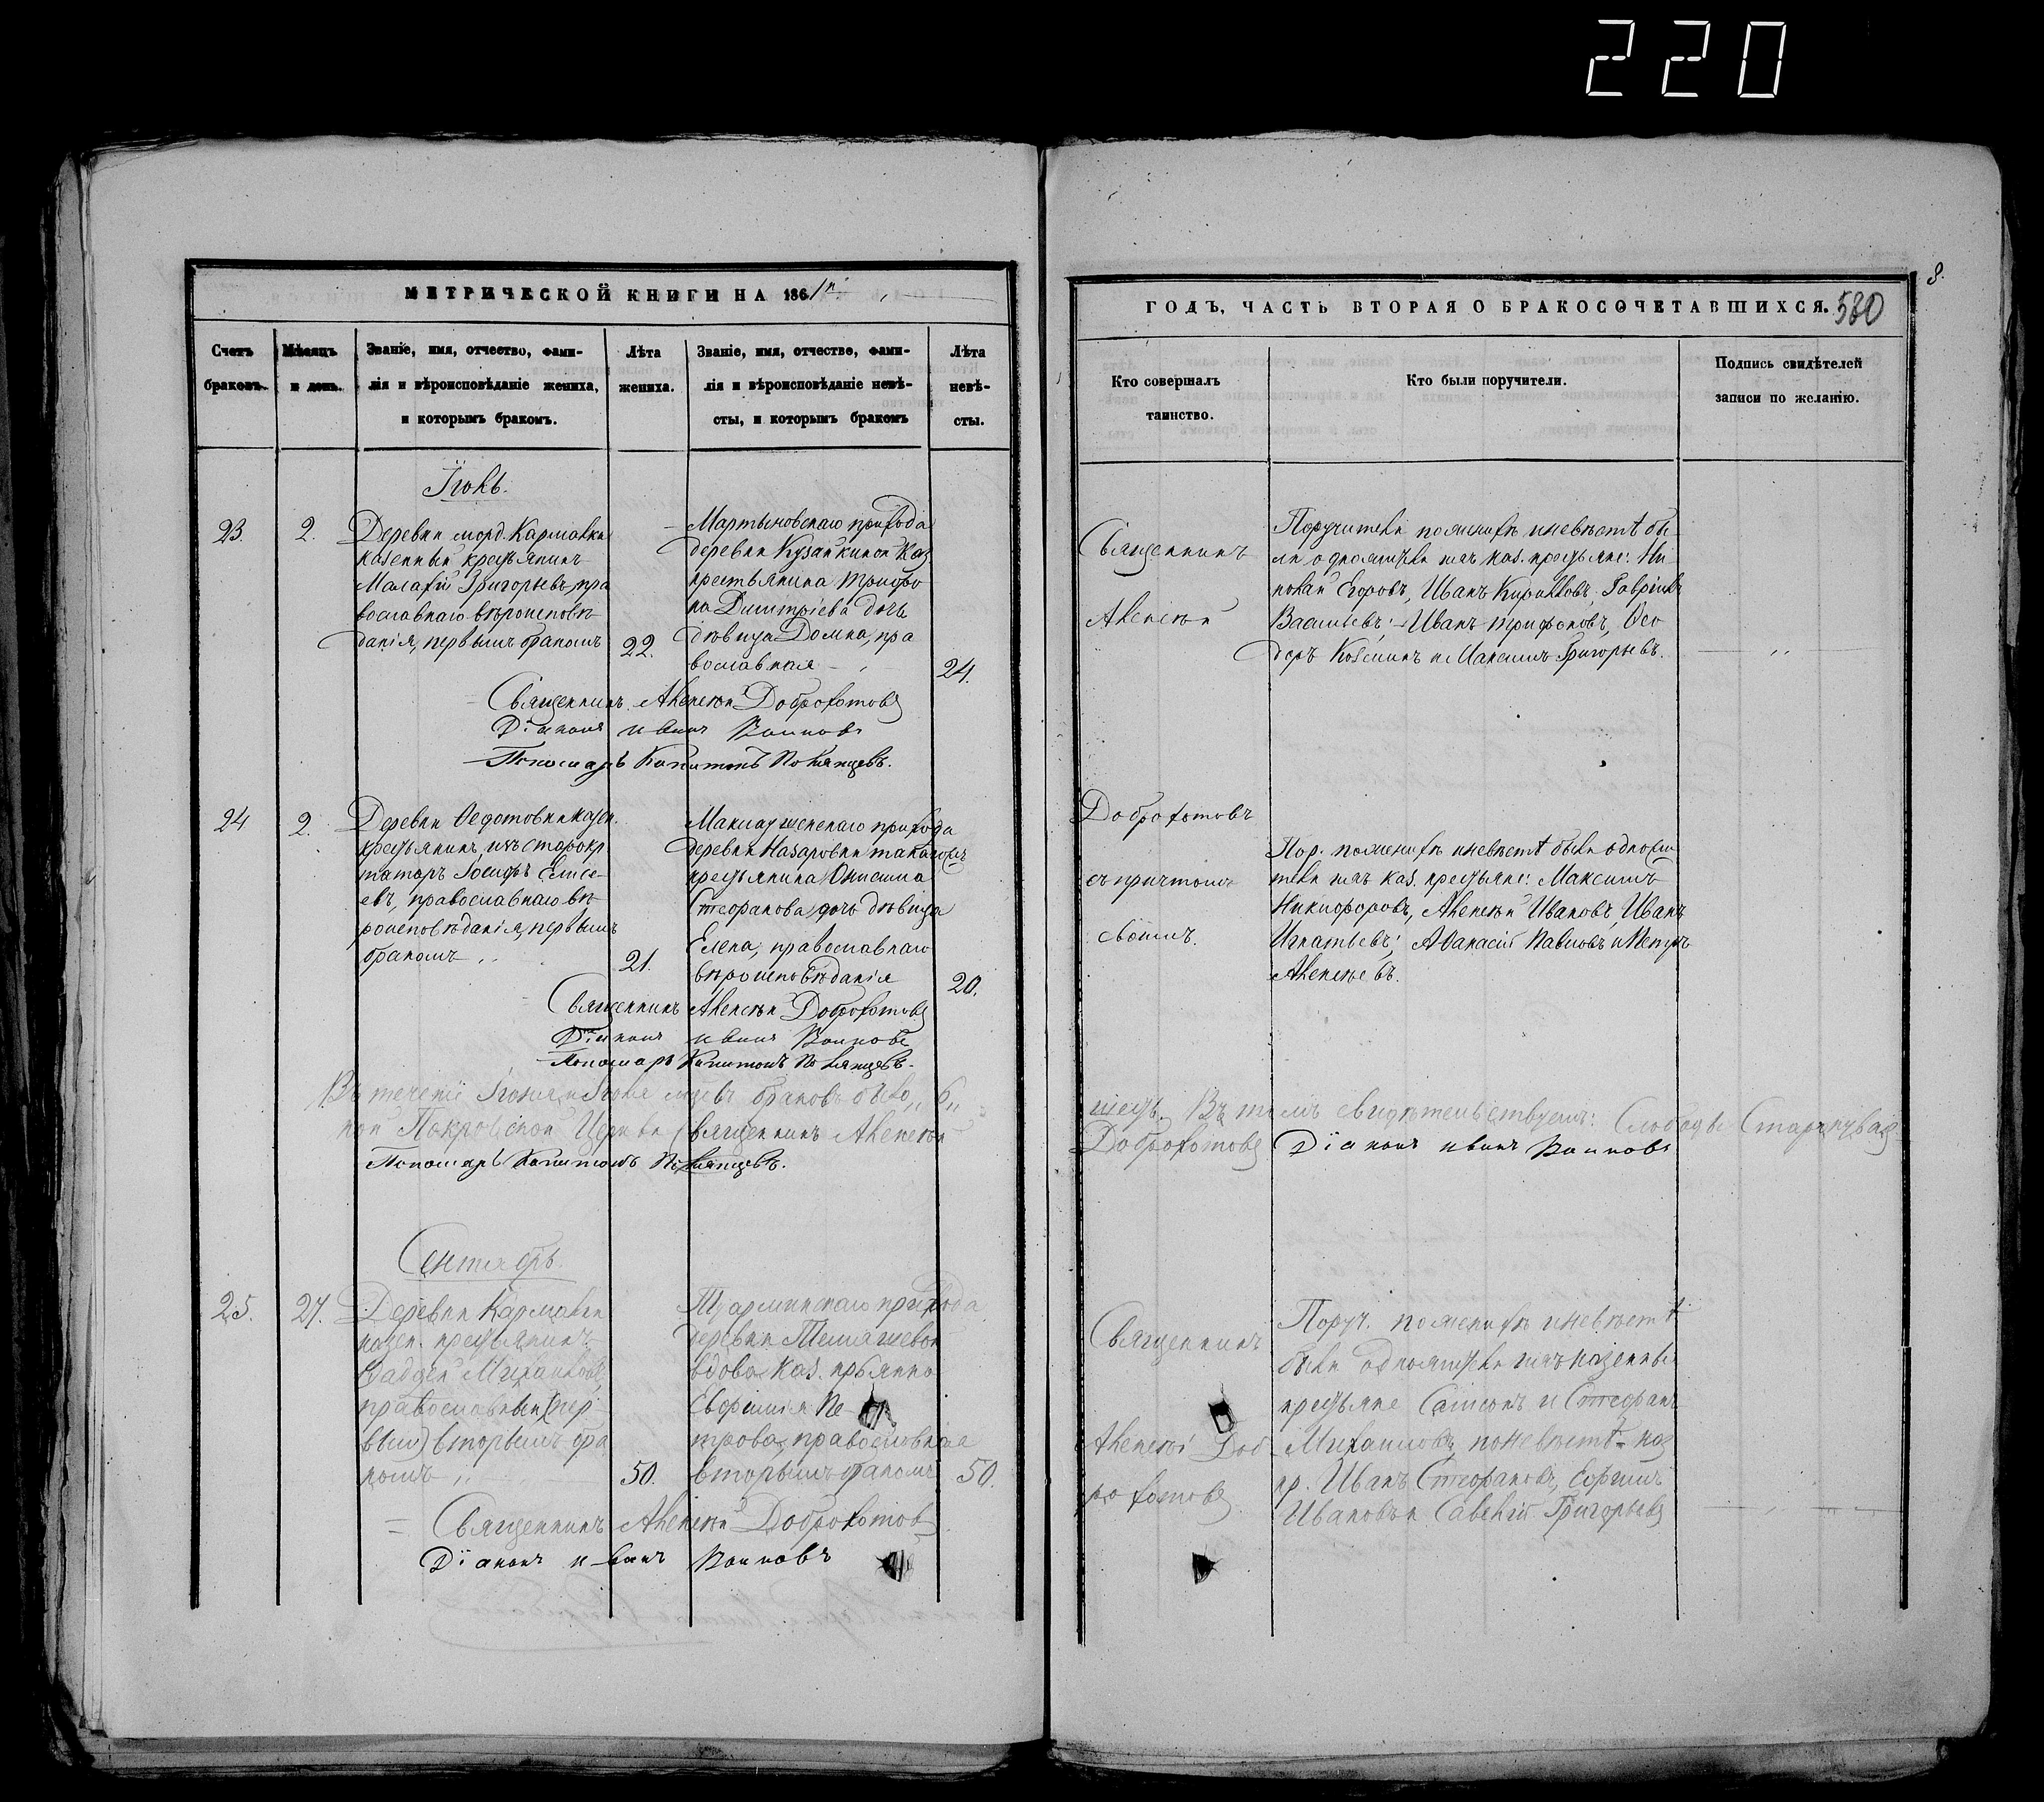 220
МЕТРИЧЕСКОЙ КНИГИ НА 1861й
Счетъ браковъ.
Мѣсяцъ и день.
Званіе, имя, отчество, фами-
лія и вѣроисповѣданіе жениха,
и которымъ бракомъ.
Лѣта
жениха.
Званіе, имя, отчество, фами-
лія и вѣроисповѣданіе невѣ-
сты, и которымъ бракомъ
Лѣта
невѣ-
сты.
Іюль.
23.
2.
Деревни морд. Кармалки
казенный крестьянинъ
Малафій Григорьевъ, пра
вославнаго вѣроисповѣ
данія, первымъ бракомъ
22.
Мартыновскаго прихода
деревни Кузайкиной каз
крестьянина Трифо
на Димитріева дочь
дѣвица Домна, пра
вославная
24.
Священникъ Алексѣй Доброхотовъ
Діаконъ Иванъ
Пономарь Капитонъ
24
2.
Деревни Ѳедотовки казен.
крестьянинъ, изъ старокр
татаръ Іосифъ Елисе-
евъ, православнаго вѣ
роисповѣданія, первымъ
бракомъ
21.
прихода
деревни Назаровки
крестьянина Онисима
Стефанова дочь дѣвица
Елена, православнаго
вѣроисповѣданія
20.
Священникъ Алексѣй Доброхотовъ
Діаконъ Иванъ
Пономарь Капитонъ
Въ теченіи Іюня и Іюля браковъ было „6„
ной Покровской Церкви Священникъ Алексѣй
Пономарь Капитонъ
Сентябрь.
25.
27.
Деревни Кармалки
казен. крестьянинъ
Фаддей Михайловъ,
православный (пер
вым) вторымъ бра
комъ
50.
прихода
деревни
вдова каз.
Евфимія Пе
трова, православная
вторымъ бракомъ
50.
Священникъ Алексѣй Доброхотовъ
Діаконъ Иванъ
8.
ГОДЪ, ЧАСТЬ ВТОРАЯ О БРАКОСОЧЕТАВШИХСЯ. 580
Кто совершалъ
таинство.
Кто были поручители.
Подпись свидѣтелей
записи по желанію.
Священникъ
Алексѣй
Доброхотовъ
съ причтомъ
своимъ.
Поручители по женихѣ и невѣстѣ бы
ли одножители ихъ каз. крестьяне: Ни
колай Егоровъ, Иванъ Кирилловъ, Гавріилъ
Васильевъ; Иванъ Трифоновъ, Ѳео
доръ Козминъ и Максимъ Григорьевъ.
Пор. по женихѣ и невѣстѣ были одножи
тели ихъ каз. крестьяне: Максимъ
Никифоровъ, Алексѣй Ивановъ, Иванъ
Игнатьевъ; Аѳанасій Павловъ и Петръ
Алексѣевъ.
шесть. Въ томъ свидѣтельствуемъ: Слободы
Доброхотовъ Діаконъ Иванъ
Священникъ
Алексѣй Доб
рохотовъ
Поруч. по женихѣ и невѣстѣ
были одножители ихъ казенные
крестьяне Самсонъ и Стефанъ
Михаиловы, по невѣстѣ каз
кр. Иванъ Стефановъ, Ефимъ
Ивановъ и Савелій Григорьевъ